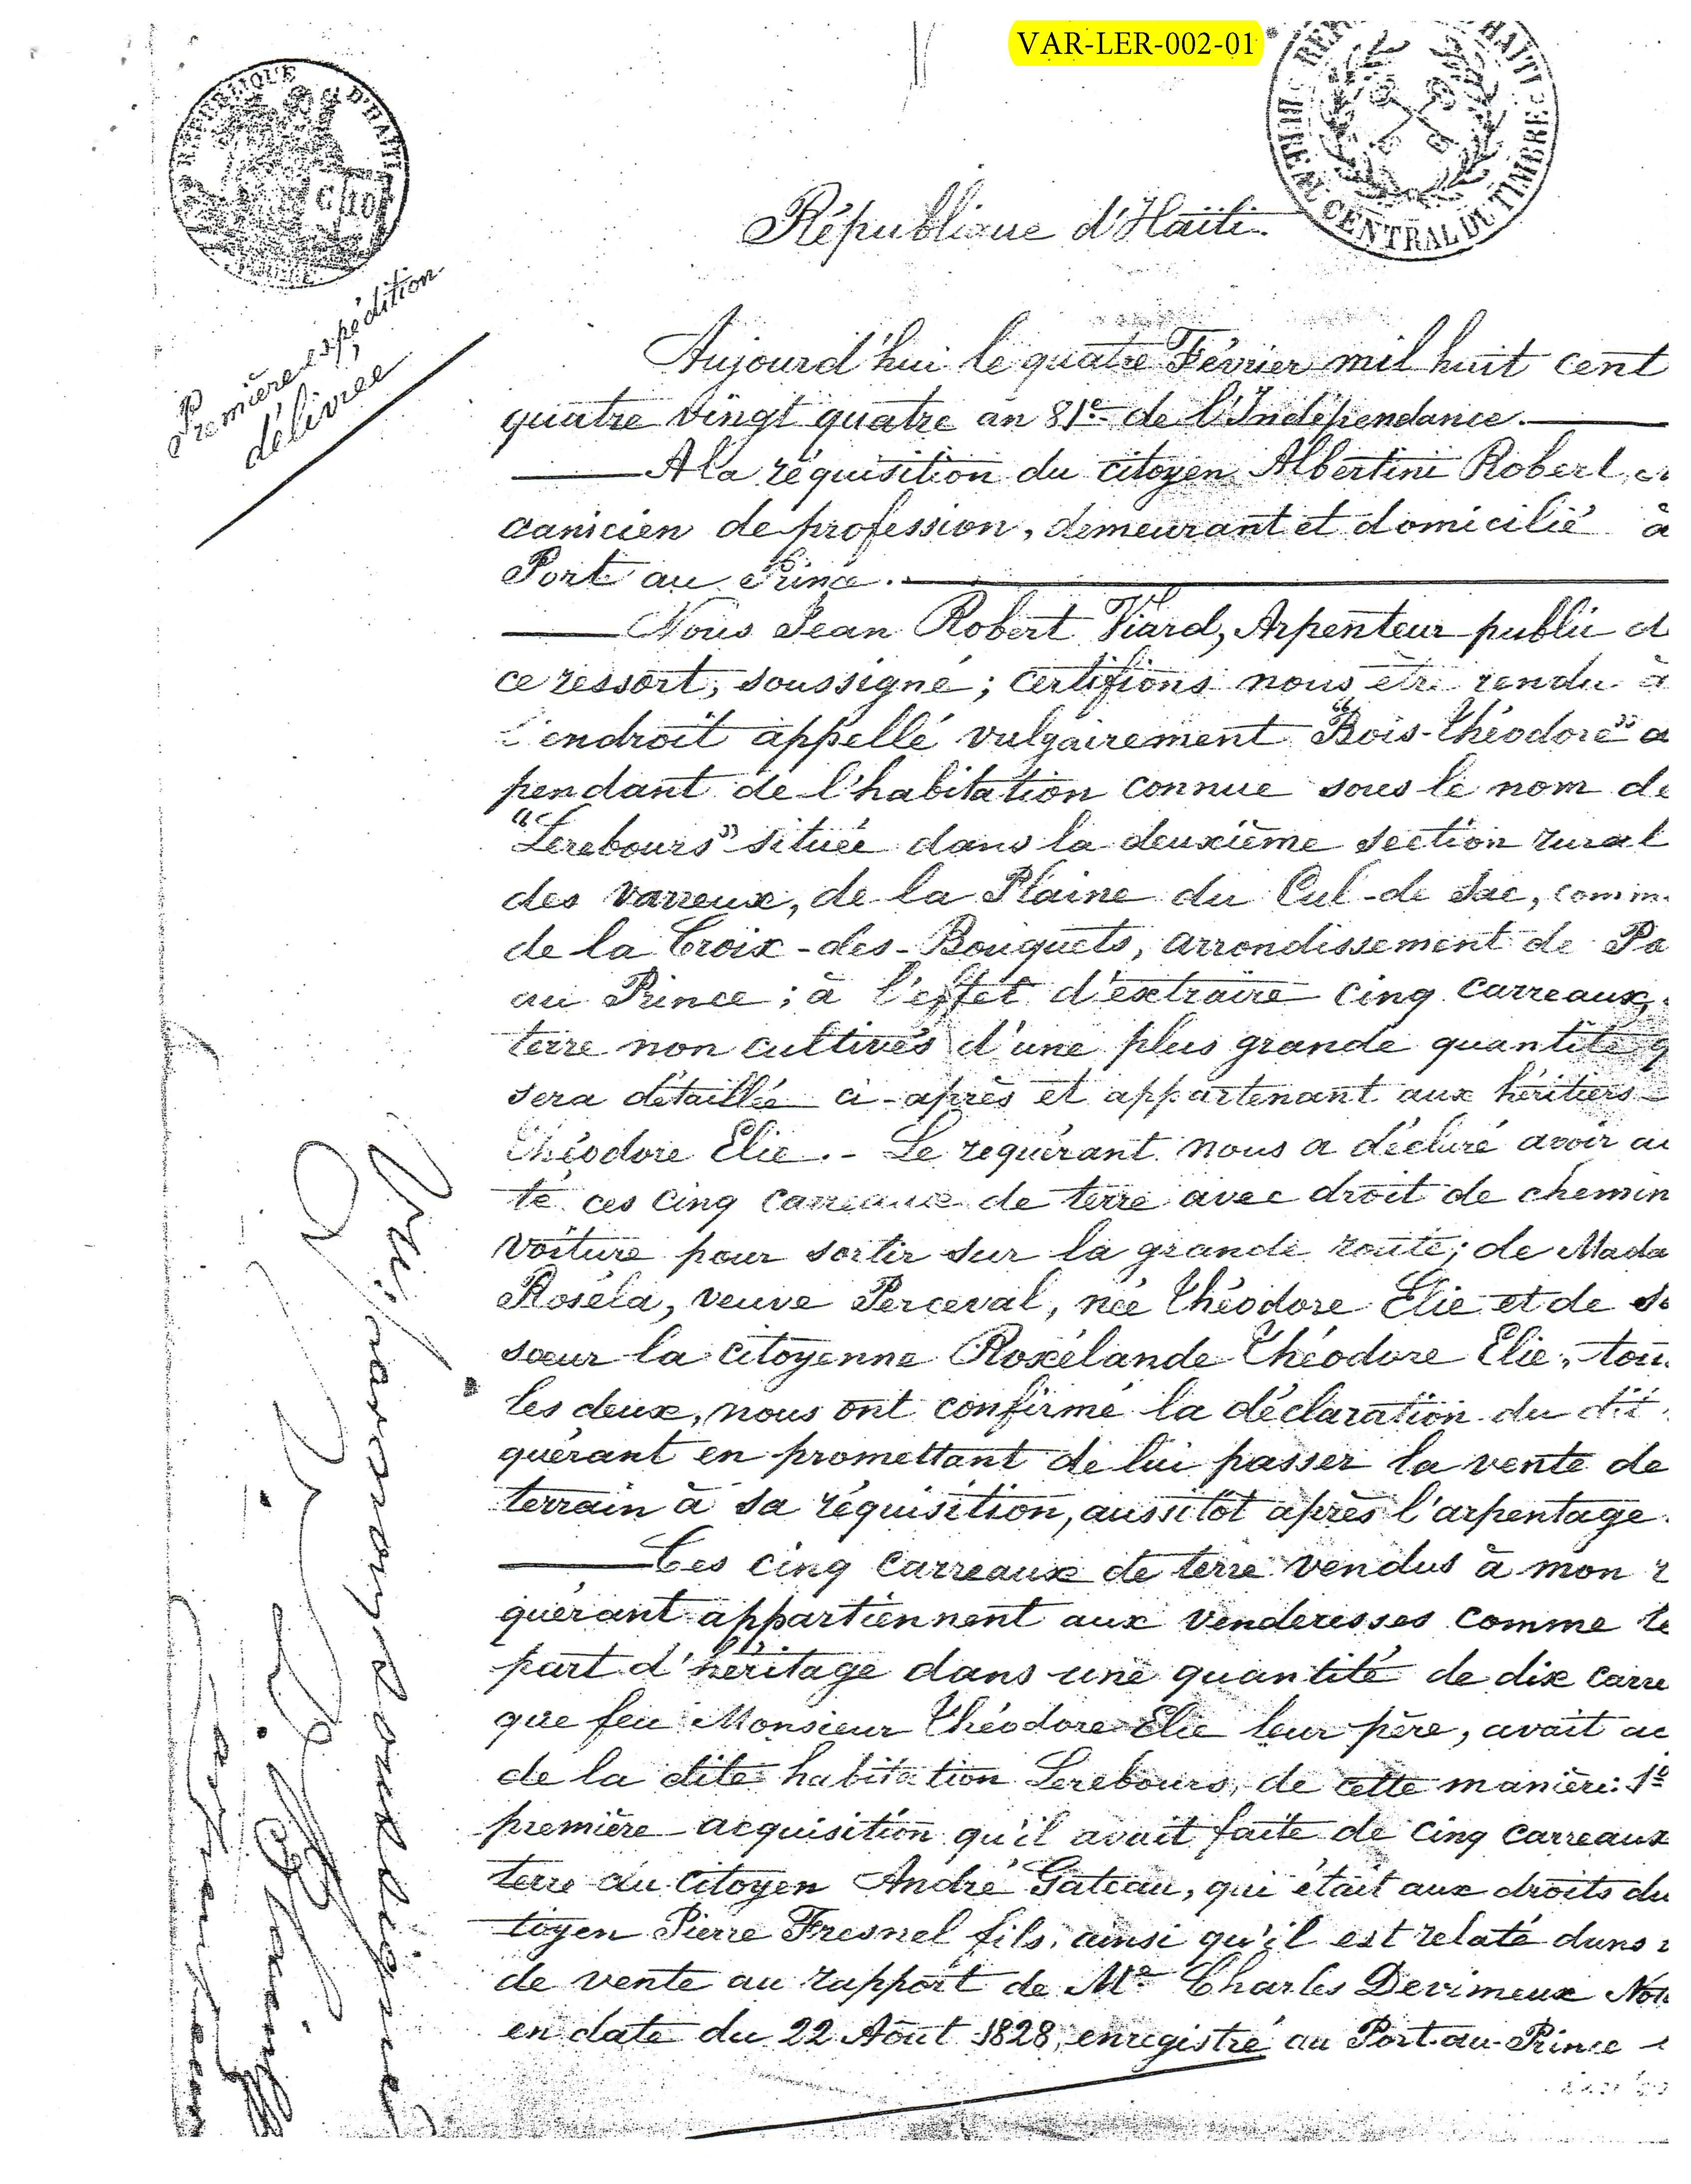 VAR-LER-002-01
REPUBLIQUE D'HAITI
C 10
BUREAU CENTRAL DU TIMBRE
HAITI
République d'Haïti.
Première expédition
délivrée
Aujourd'hui le quatre Février mil huit cent
quatre vingt quatre an 81e de l'Indépendance.
A la réquisition du citoyen Albertini Robert
canicien de profession, demeurant et domicilié à
Port au Prince.
Nous Jean Robert Viard, Arpenteur public d
ce ressort, soussigné; certifions nous être rendu à
l'endroit appellé vulgairement "Bois-Théodore"
pendant de l'habitation connue sous le nom de
"Lerebours" située dans la deuxième section rural
des Varreux, de la Plaine du Cul-de Sac, comm
de la Croix-des-Bouquets, arrondissement de Po
au Prince; à l'effet d'extraire cinq carreaux,
terre non cultivés d'une plus grande quantité q
sera détaillée ci-après et appartenant aux héritiers
Théodore Elie. - Le requérant nous a déclaré avoir ac
té ces cinq carreaux de terre avec droit de chemin
voiture pour sortir sur la grande route; de Mada
Roséla, veuve Perceval, née Théodore Elie et de sa
sœur la citoyenne Roxélande Théodore Elie, tou
les deux, nous ont confirmé la déclaration du dit
quérant en promettant de lui passer la vente de
terrain à sa réquisition, aussitôt après l'arpentage.
Ces cinq carreaux de terre vendus à mon r
quérant appartiennent aux venderesses comme le
part d'héritage dans une quantité de dix carre
que feu Monsieur Théodore Elie leur père, avait ac
de la dite habitation Lerebours, de cette manière: 1º
première acquisition qu'il avait faite de cinq carreaux
terre du citoyen André Gateau, qui était aux droits du
toyen Pierre Fresnel fils, ainsi qu'il est relaté dans
de vente au rapport de Me Charles Devimeux Not
en date du 22 Août 1828, enregistré au Port-au-Prince